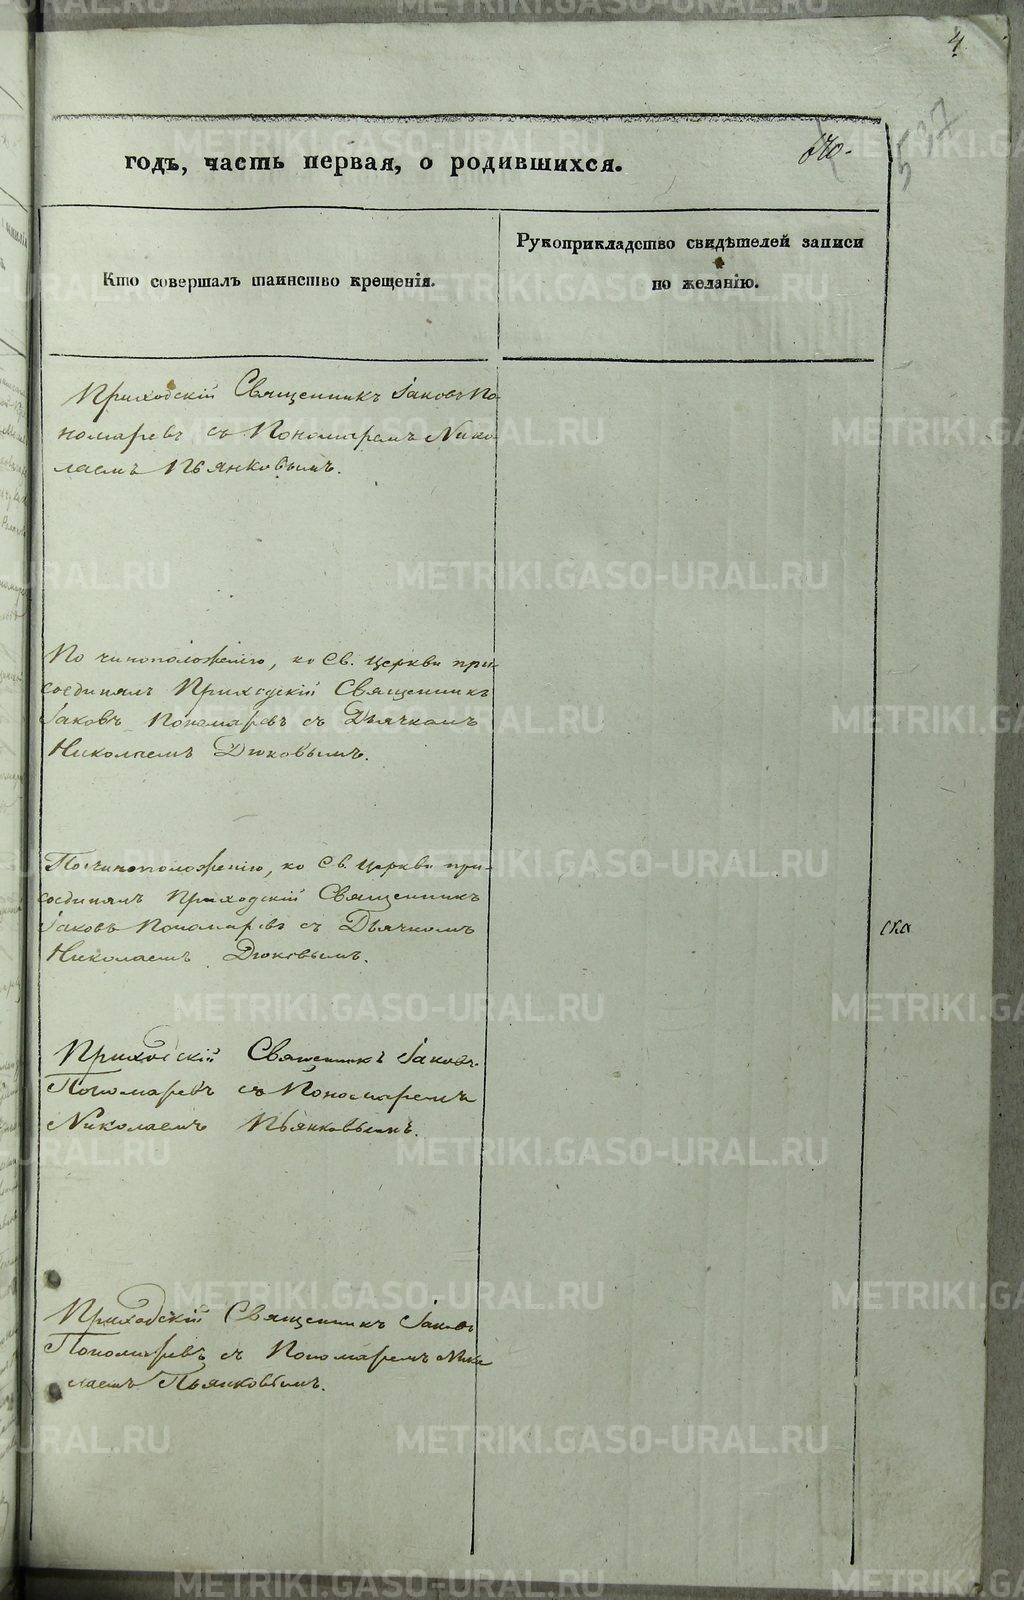 4
537
годъ, часть первая, о родившихся.
Кто совершалъ таинство крещенія.
Рукоприкладство свидѣтелей записи
по желанію.
Приходскій Священникъ Іаковъ По
номаревъ съ Пономаремъ Нико
лаемъ Пьянковымъ.
По чиноположенію, ко Св. Церкви при
соединялъ Приходскій Священникъ
Іаковъ Пономаревъ съ Дьячкомъ
Николаемъ Дюковымъ.
По чиноположенію, ко Св. Церкви при-
соединялъ Приходскій Священникъ
Іаковъ Пономаревъ съ Дьячкомъ
Николаемъ Дюковымъ.
ска
Приходскій Священникъ Іаковъ
Пономаревъ съ Пономаремъ
Николаемъ Пьянковымъ.
Приходскій Священникъ Іаковъ
Пономаревъ съ Пономаремъ Нико
лаемъ Пьянковымъ.
METRIKI.GASO-URAL.RU